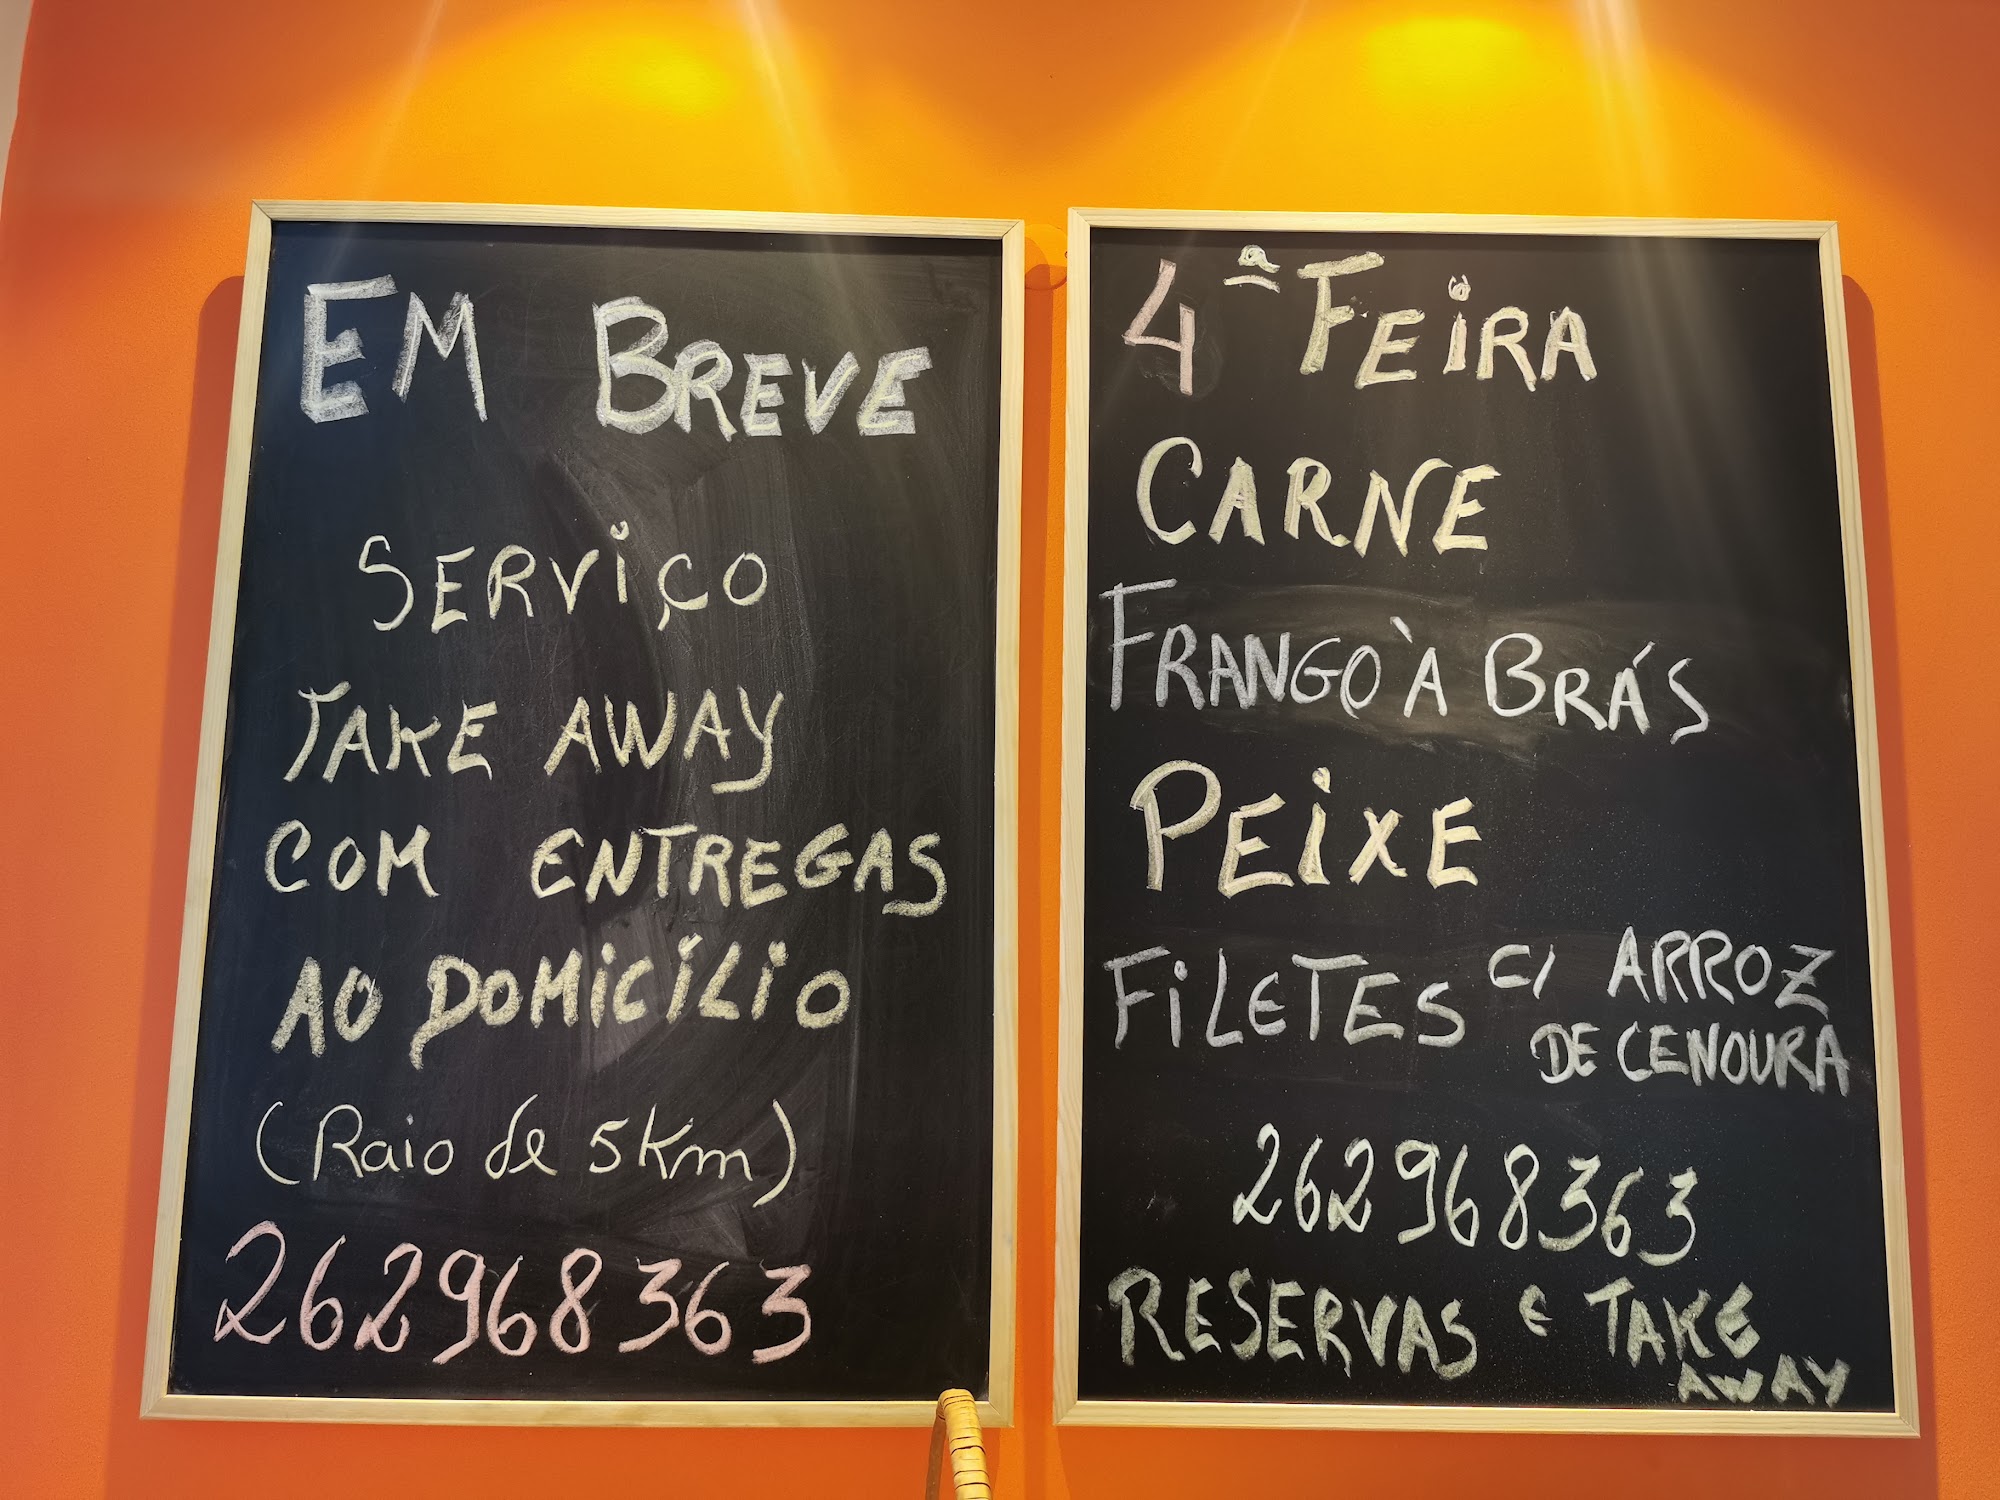 EM BREVE
SERVIÇO
TAKE AWAY
COM ENTREGAS
AO DOMICÍLIO
(Raio de 5Km)
262968363
4ª FEIRA
CARNE
FRANGO À BRÁS
PEIXE
FILETES C/ ARROZ
DE CENOURA
262968363
RESERVAS E TAKE
AWAY